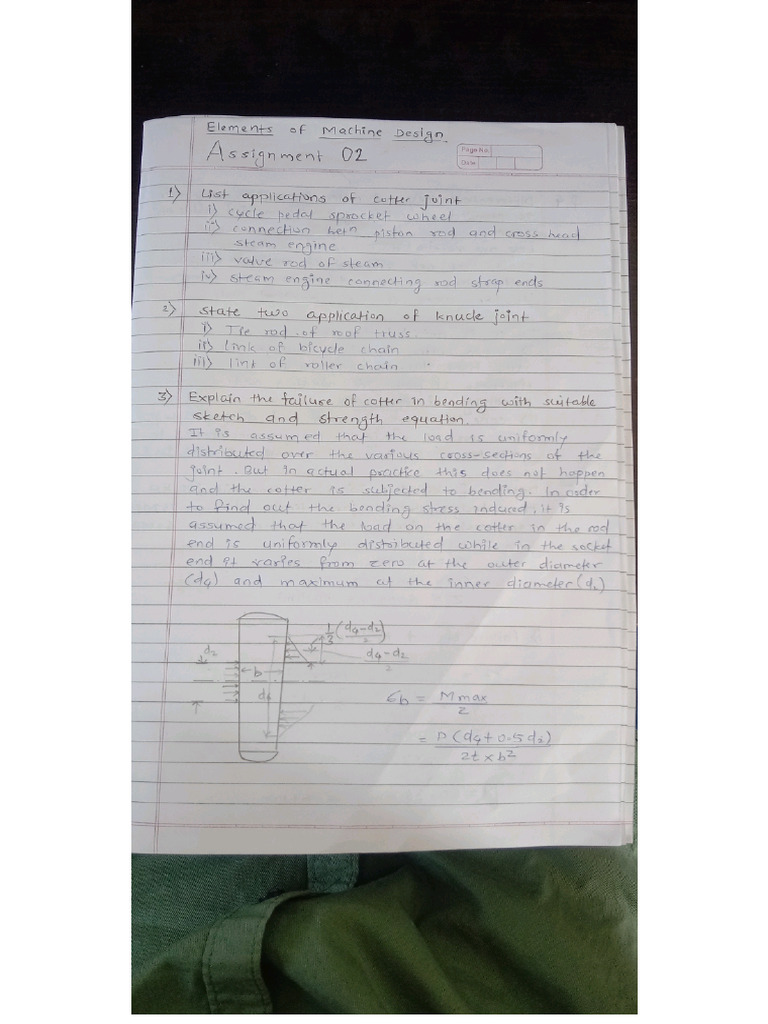 Elements of Machine Design
Assignment 02
Page No.
Date
1) List applications of cotter joint
i) cycle pedal sprocket wheel
ii) connection betn piston rod and cross head
steam engine
iii) valve rod of steam
iv) steam engine connecting rod strap ends
2) State two application of knucle joint
i) Tie rod of roof truss
ii) link of bicycle chain
iii) link of roller chain
3) Explain the failure of cotter in bending with suitable
sketch and strength equation.
It is assumed that the load is uniformly
distributed over the various cross-sections of the
joint. But in actual practice this does not happen
and the cotter is subjected to bending. In order
to find out the bending stress induced, it is
assumed that the load on the cotter in the rod
end is uniformly distributed while in the socket
end it varies from zero at the outer diameter
(d4) and maximum at the inner diameter (d2)
1/3 (d4-d2/2)
d2
d4-d2/2
b
d4
σb = Mmax/z
= P(d4+0.5d2)/2t×b²